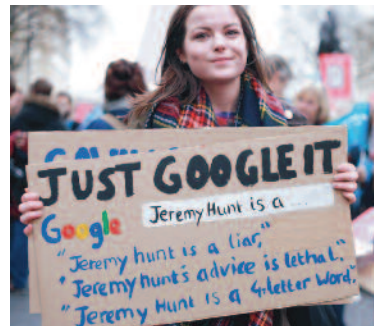 JUST GOOGLE IT
Google
Jeremy Hunt is a ...
"Jeremy hunt is a liar,"
"Jeremy hunt's advice is lethal."
"Jeremy Hunt is a 4-letter word."